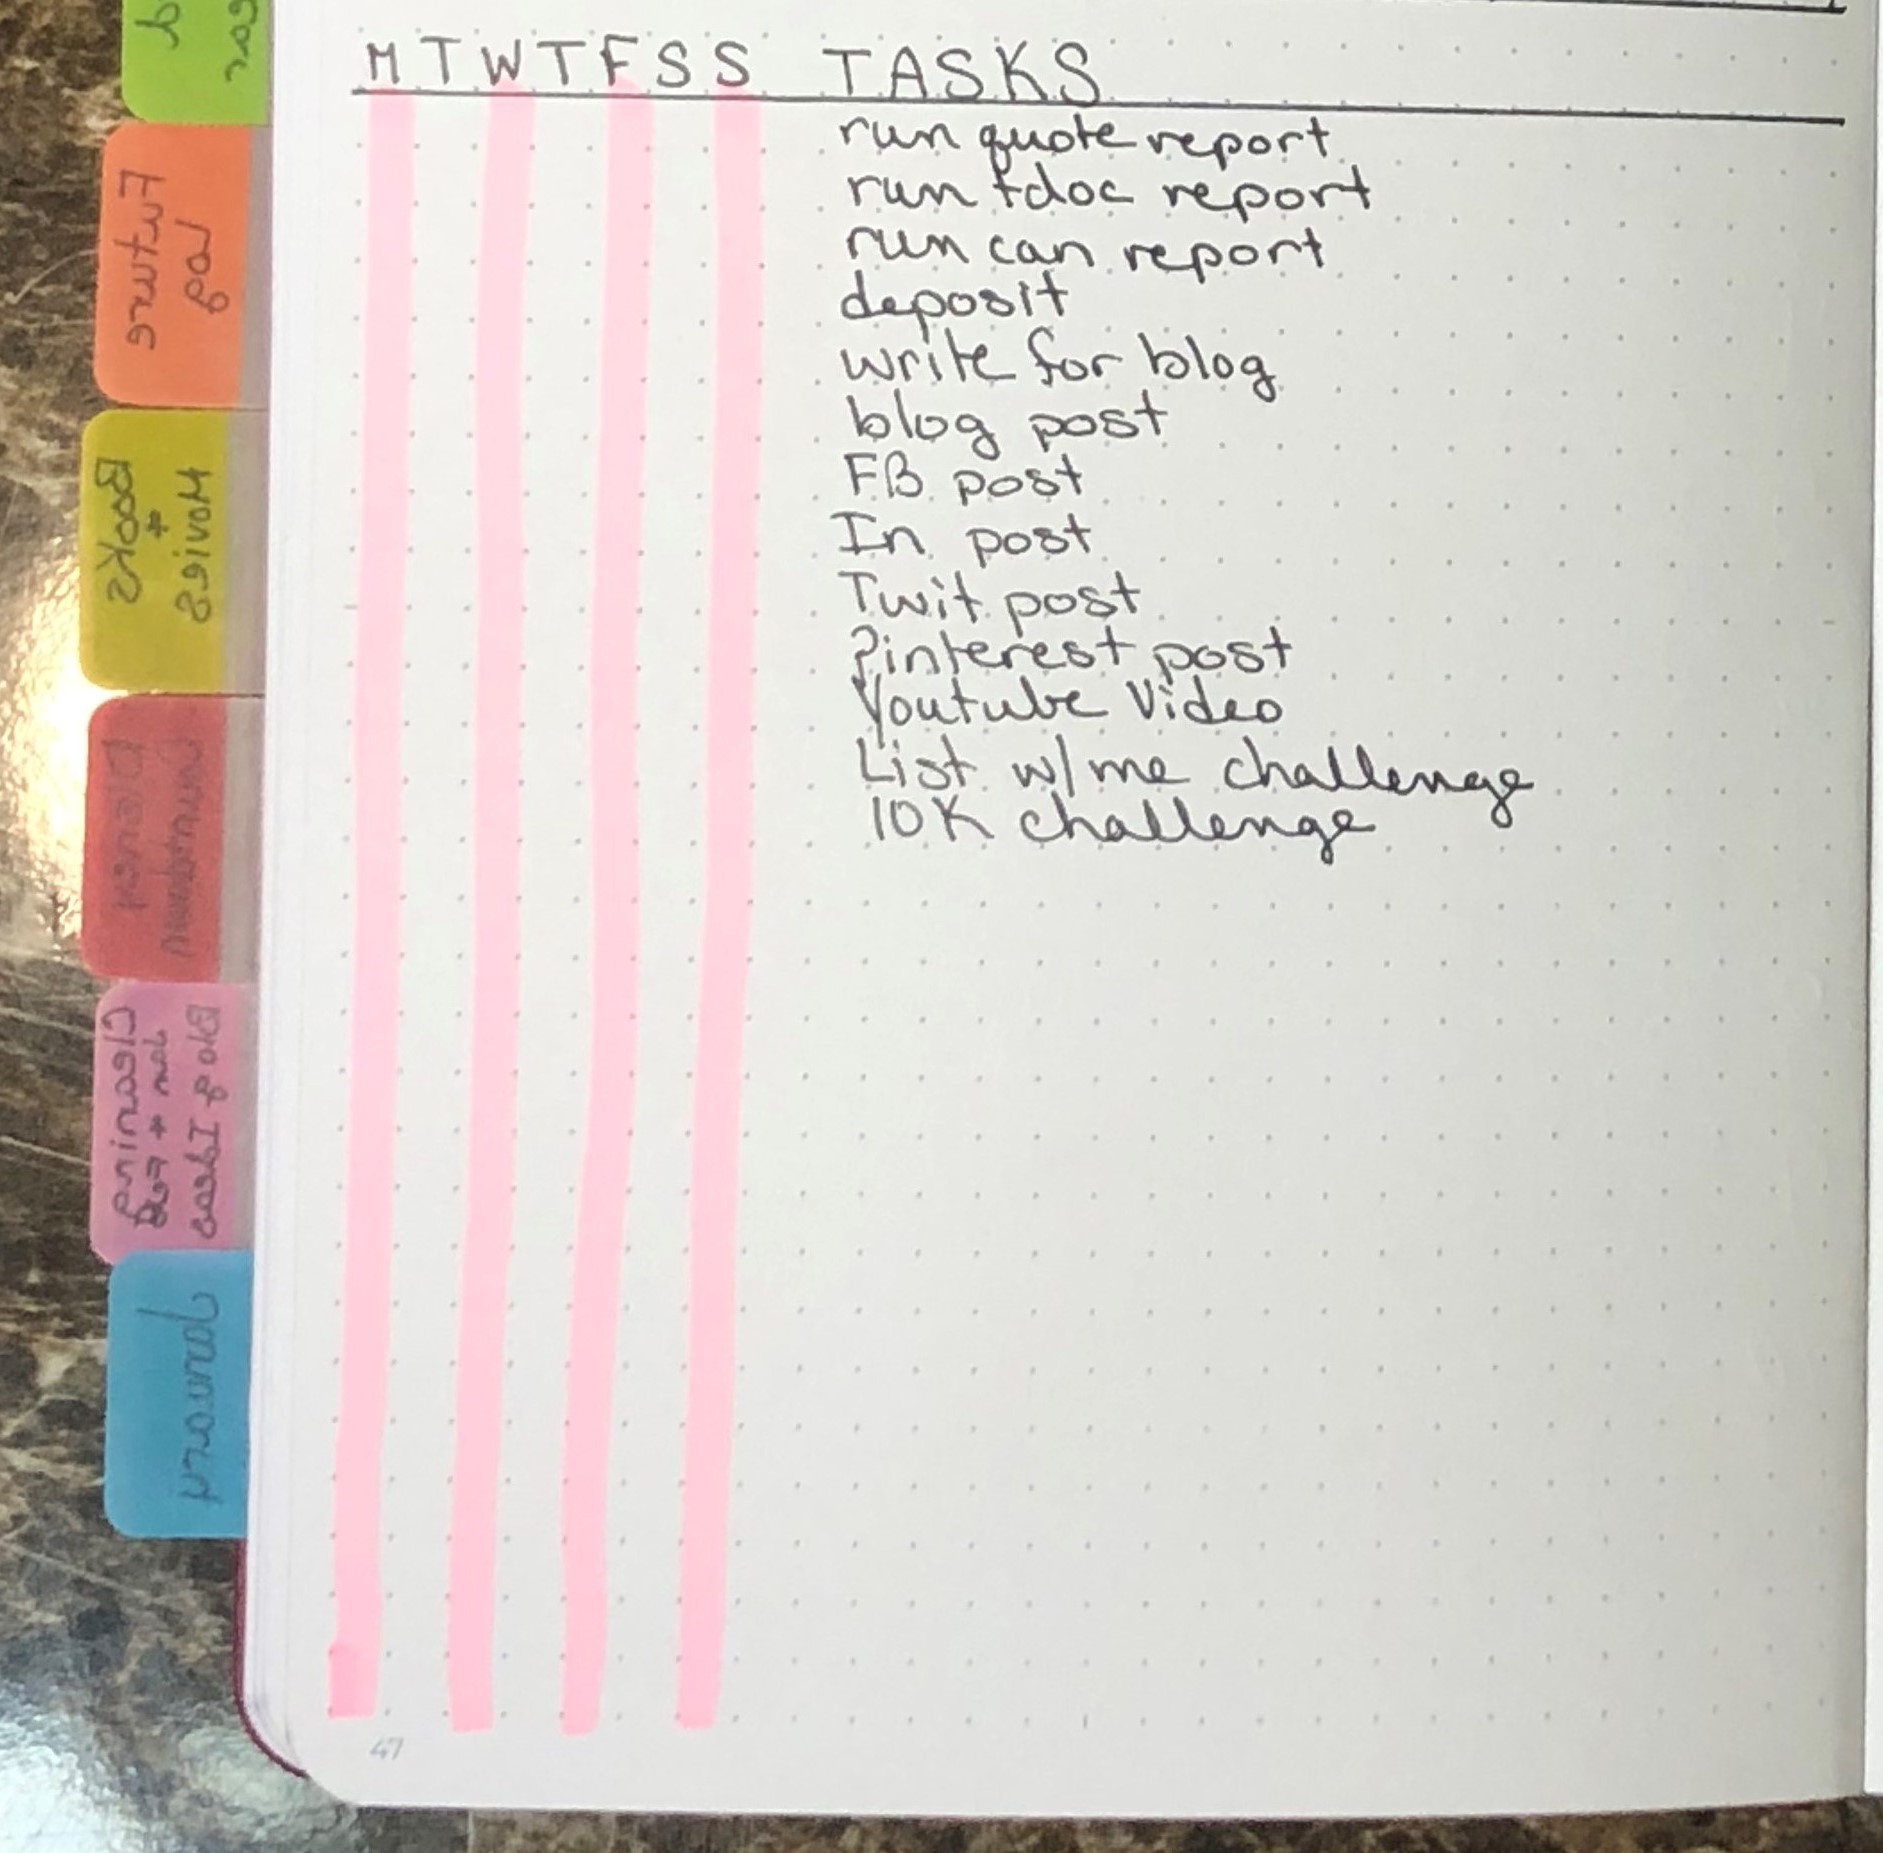 M T W T F S S TASKS
run quote report
run tdoc report
run can report
deposit
write for blog
blog post
FB post
In post
Twit post
Pinterest post
Youtube Video
List w/me challenge
10K challenge
47
Future
Log
Movies
&
Books
Cleaning
Blog Ideas